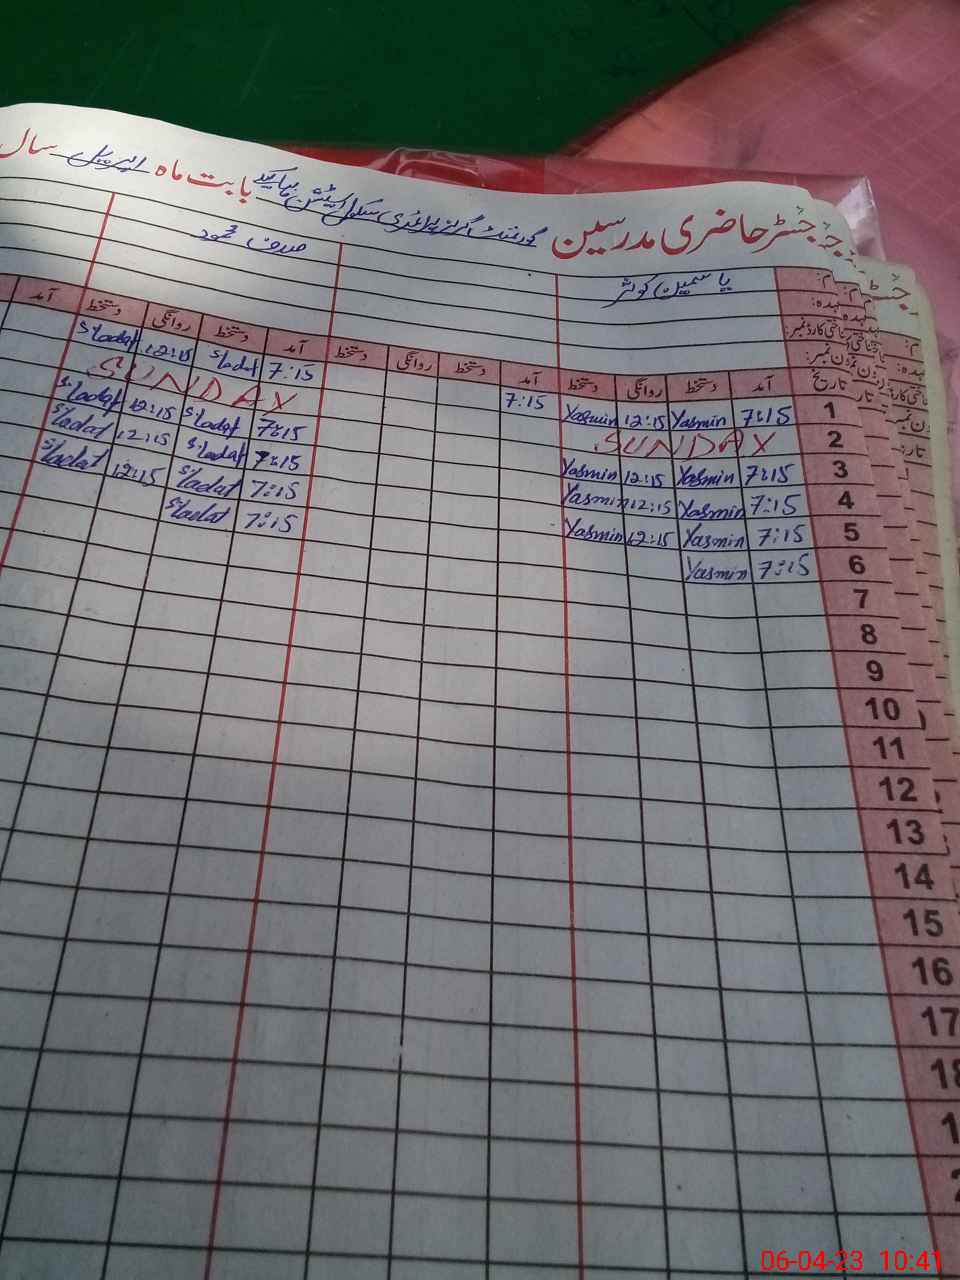 رجسٹر حاضری مدرسین گورنمنٹ گرلز پرائمری سکول بابت ماہ اپریل سال
یاسمین کوثر
تاریخ آمد دستخط روانگی دستخط آمد دستخط روانگی دستخط آمد دستخط روانگی دستخط آمد
1 7:15 Yasmin 12:15 Yasmin 7:15 7:15 S/adat 12:15 S/adat
2 SUNDAY SUNDAY
3 7:15 Yasmin 12:15 Yasmin 7:15 S/adat 12:15 S/adat
4 7:15 Yasmin 12:15 Yasmin 7:15 S/adat 12:15 S/adat
5 7:15 Yasmin 12:15 Yasmin 7:15 S/adat 12:15 S/adat
6 7:15 Yasmin 7:15 S/adat
7
8
9
10
11
12
13
14
15
16
17
18
06-04-23 10:41